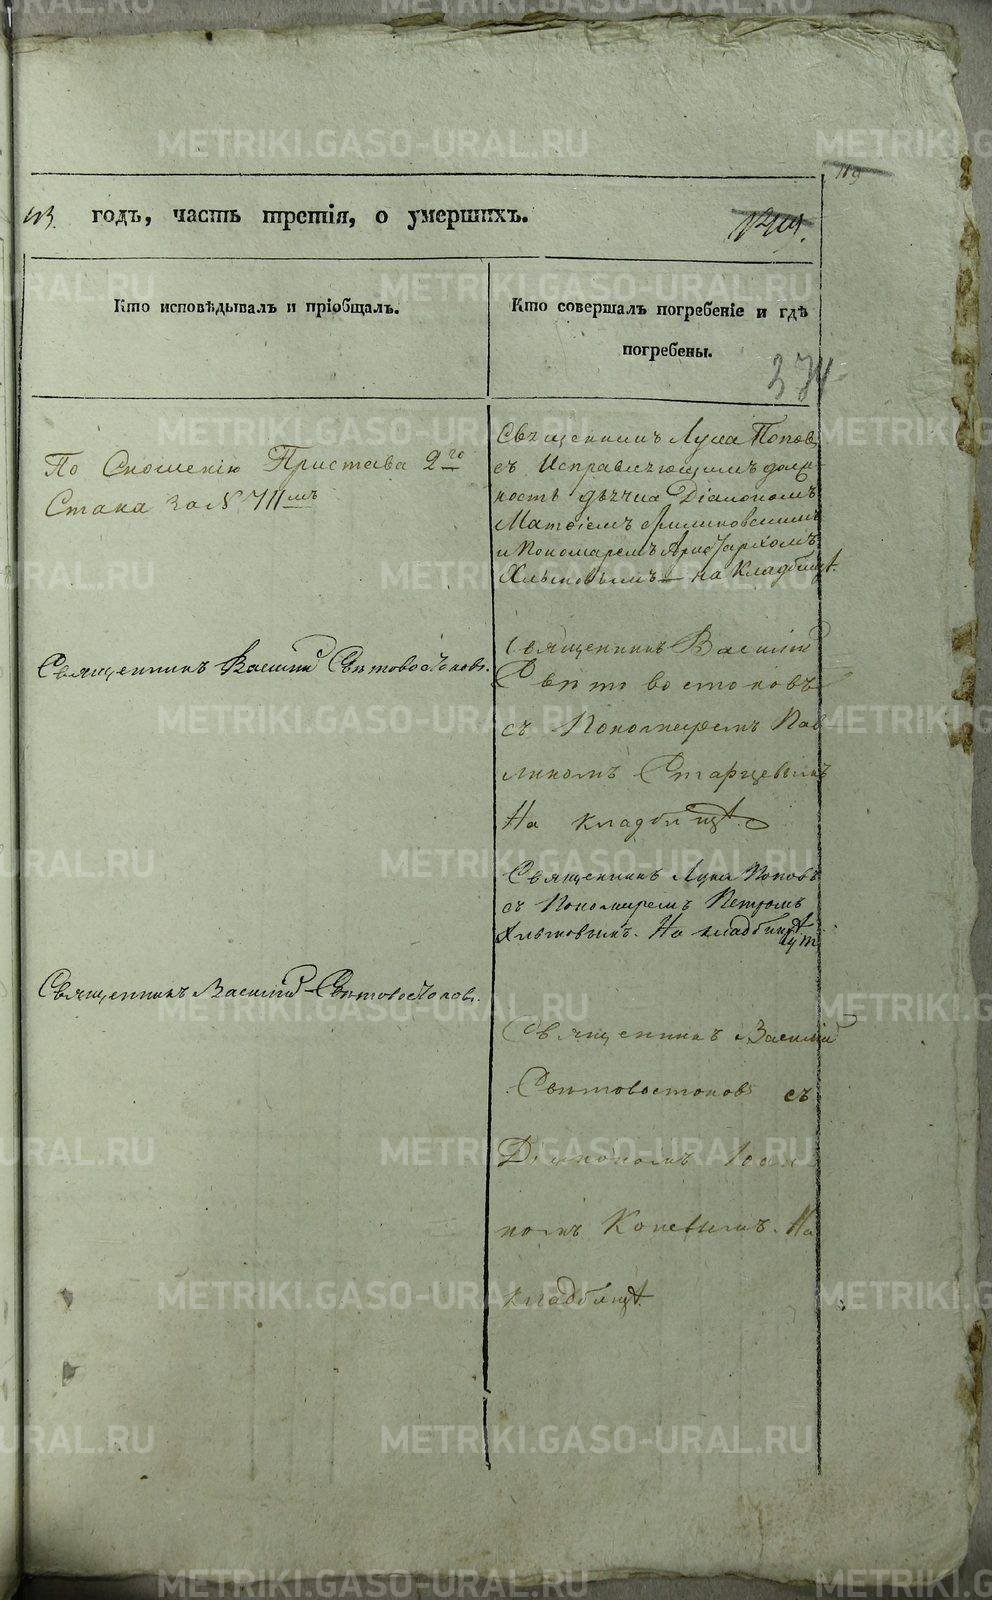 119
43. годъ, часть третія, о умершихъ.
Кто исповѣдывалъ и пріобщалъ.
Кто совершалъ погребеніе и гдѣ
погребены.
374
По Сношенію Пристава 2го
Стана за № 711мъ
Священникъ Лука Поповъ
съ Исправляющимъ долж-
ность дьячка Діакономъ
и Пономаремъ Аристархомъ
Хлыновымъ – на Кладбищѣ.
Священникъ Василій Свѣтовостоковъ.
Священникъ Василій
Свѣтовостоковъ
съ Пономаремъ Пав-
линомъ Старцевымъ
На кладбищѣ.
Священникъ Лука Поповъ
съ Пономаремъ Петромъ
Хлыновымъ. На кладбищѣ
Священникъ Василій Свѣтовостоковъ.
Священникъ Василій
Свѣтовостоковъ съ
Діакономъ Іоан-
номъ Коневымъ. На
кладбищѣ.
METRIKI.GASO-URAL.RU